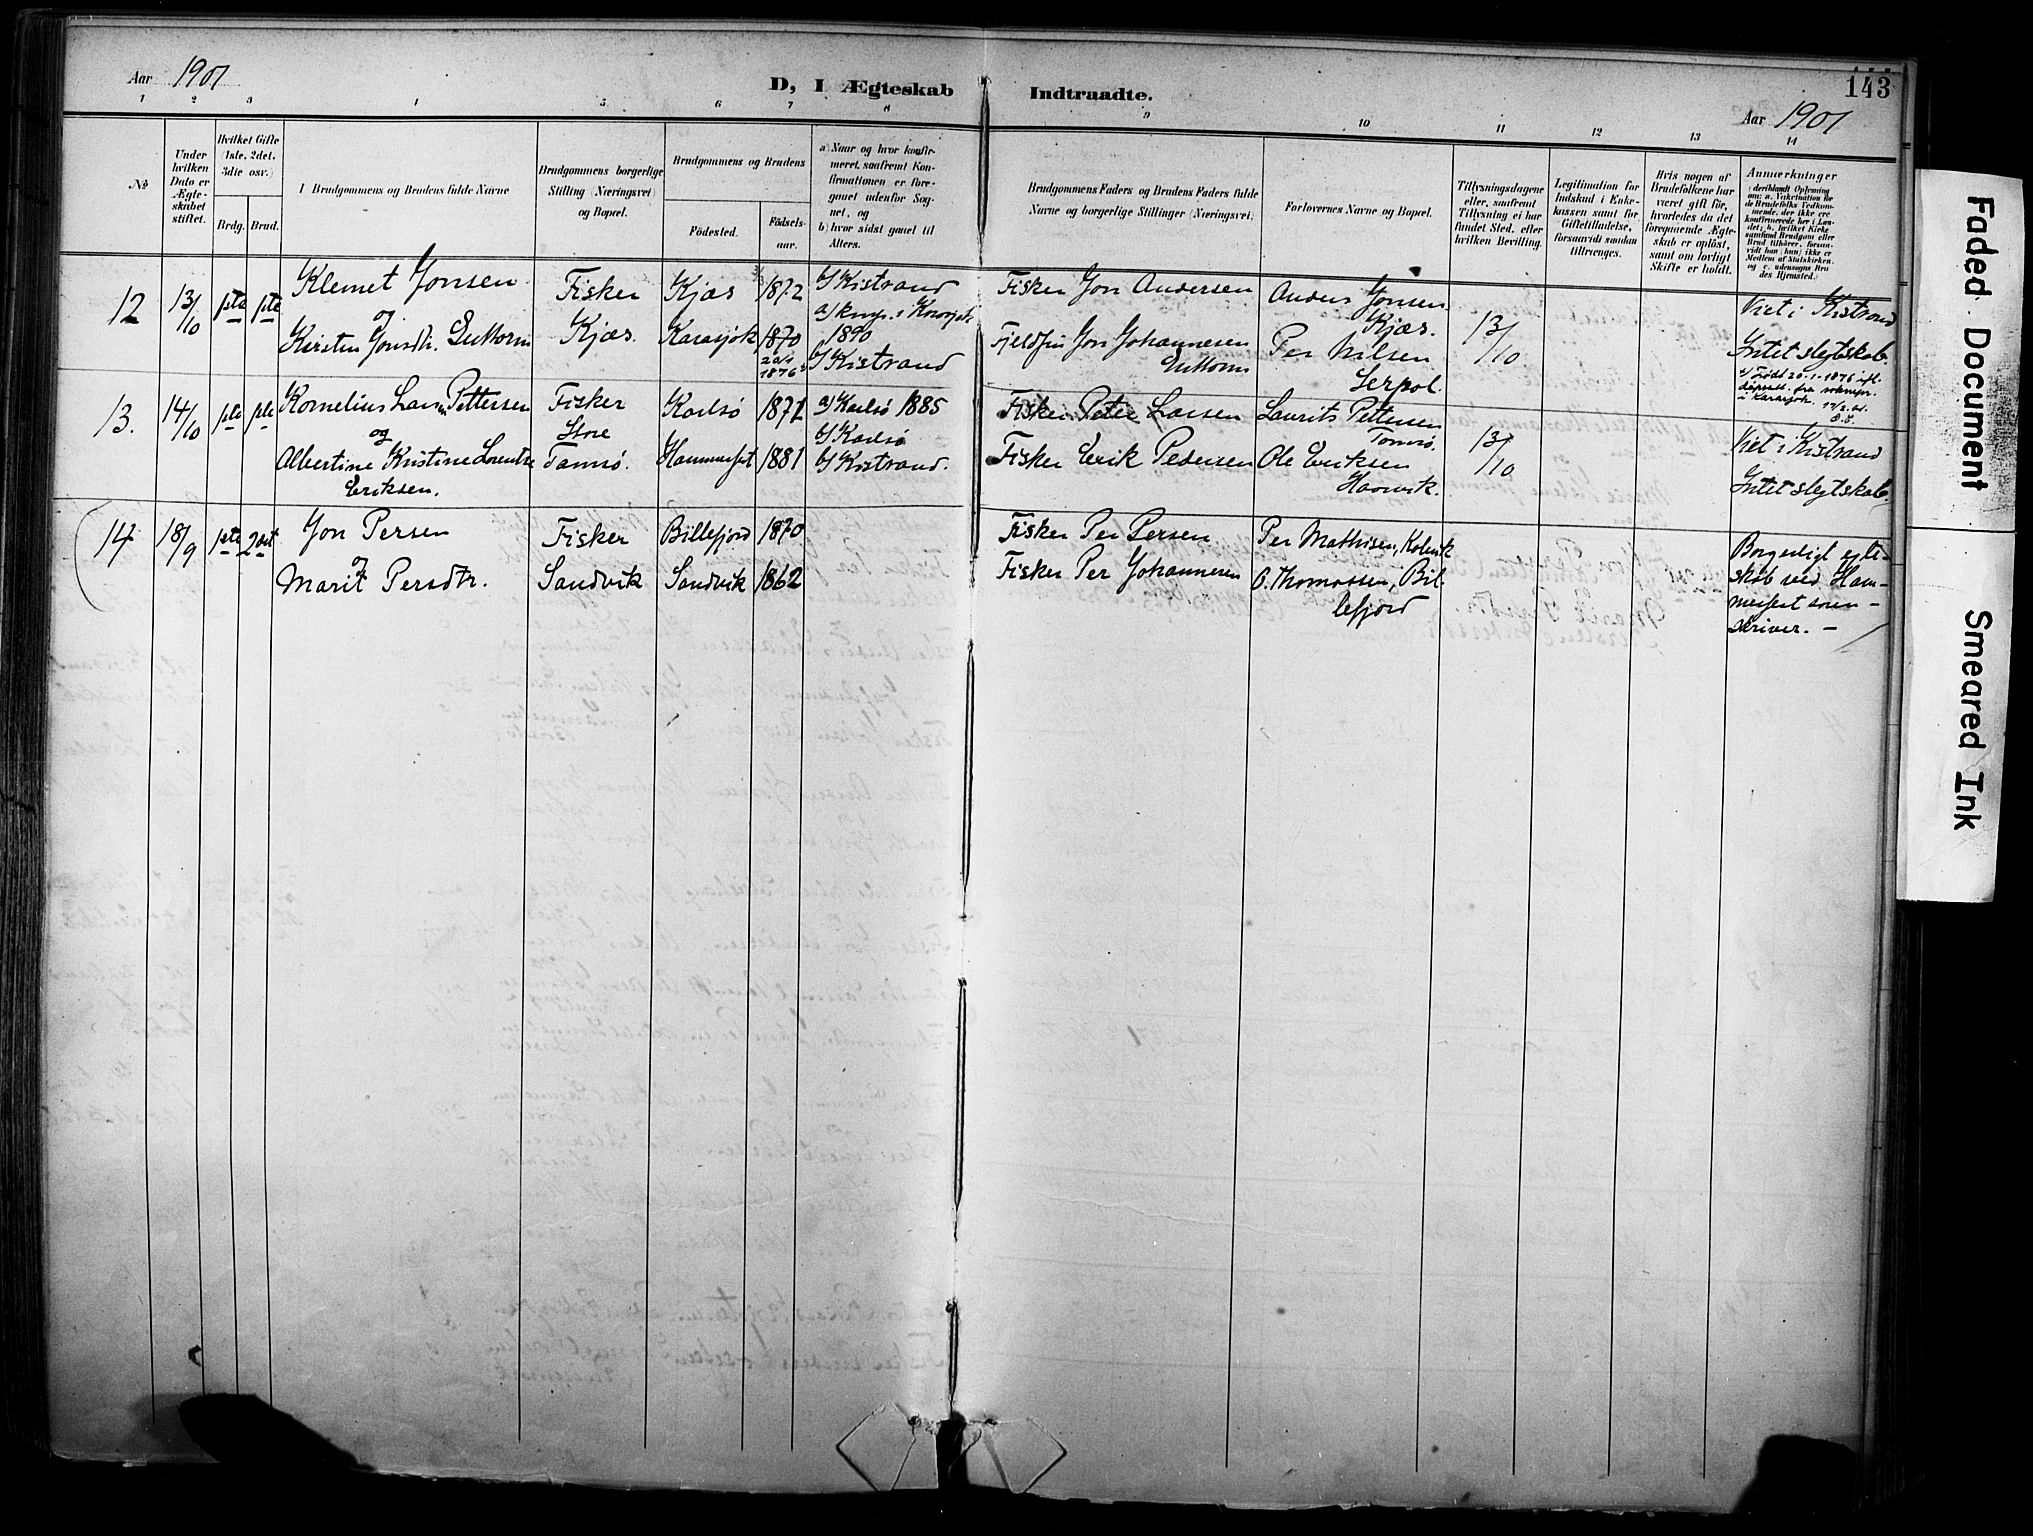 Aar 1901
D, I Ægteskab Indtraadte.
143
Aar 1901
1 2 3 4 5 6 7 8 9 10 11 12 13 14
No
Under hvilken Dato er Ægteskabet stiftet.
Hvilket Gifte (1ste, 2det, 3die osv.)
Brdg. Brud.
I Brudgommens og Brudens fulde Navne
Brudgommens borgerlige Stilling (Næringsvei) og Bopæl.
Brudgommens og Brudens
Födested. Fødsels-aar.
a) Naar og hvor konfirmeret, saafremt Konfirmationen er foregaaet udenfor Sognet, og
b) hvor sidst gaaet til Alters.
Brudgommens Faders og Brudens Faders fulde Navne og borgerlige Stillinger (Næringsvei)
Forlovernes Navne og Bopæl.
Tillysningsdagene eller, saafremt Tillysning ei har fundet Sted, efter hvilken Bevilling.
Legitimation for Indskud i Enkekassen samt for Giftetilladelse, forsaavidt saadan tiltrænges.
Hvis nogen af Brudefolkene har været gift før, hvorledes da det foregaaende Ægteskab er opløst, samt om lovligt Skifte er holdt.
Anmærkninger
12 13/10 1ste 1ste
Klemet Jonsen
og
Kirsten Jonsdtr. Guttorm
Fisker
Kjæs.
Kjæs 1872
Karasjok 1870
20/1 1876
b/ Kistrand
1890
b/ Kistrand
Fisker Jon Andersen
Fjeldfin Jon Johannesen
Guttorm
Anders Jonsen
Kjæs.
Per Nilsen
13/10
Viet i Kistrand
Intet slegtskab.
Født 20-1-1876
i Karasjok
13. 14/10 1ste 1ste
Kornelius Larsen Pettersen
og
Albertine Kristine Lorentze
Eriksen.
Fisker
Store
Tamsø.
Karlsø 1871
Hammerfest 1881
a/ Karlsø 1885
b/ Karlsø
b/ Kistrand.
Fisker Peter Larsen
Fisker Erik Pedersen
Laurits Pettersen
Tamsø
Ole Eriksen
13/10
Viet i Kistrand
Intet slegtskab.
14 18/9 1ste 2det
Jon Persen
og
Marit Persdtr.
Fisker
Sandvik
Billefjord 1870
Sandvik 1862
Fisker Per Persen
Fisker Per Johannesen
Per Mathisen, Kolvik
O. Thomassen, Bil-
lefjord
Borgerligt egte-
skab ved Ham-
merfest soren-
skriver. –
Faded Document
Smeared Ink